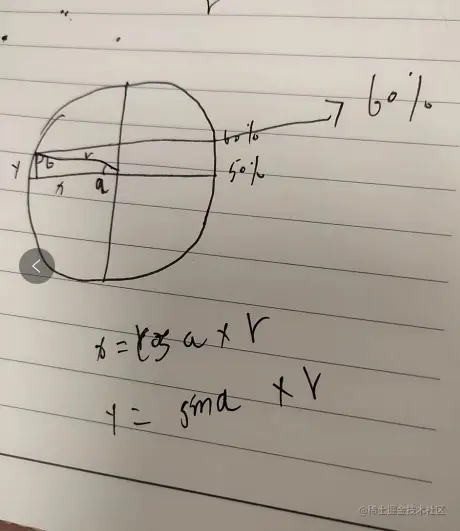 60%
60%
y b r 50%
x a
x = cos a × r
y = sina × r
@稀土掘金技术社区